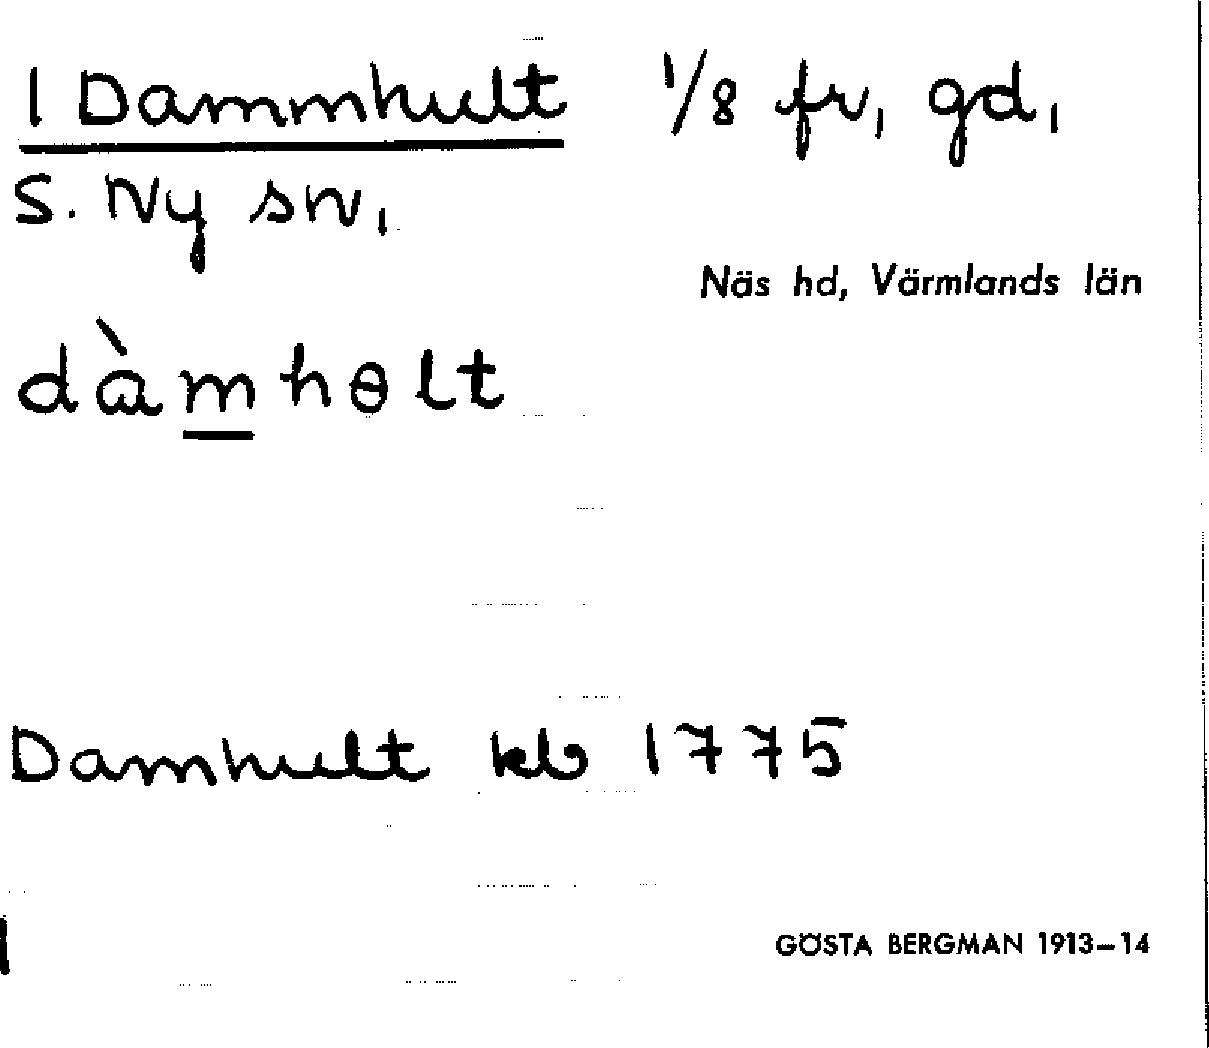 1 Dammhult 1/8 fr, gd,
S. Ny sn,
Näs hd, Värmlands län
dàmhɵlt
Damhult kb 1775
GÖSTA BERGMAN 1913–14